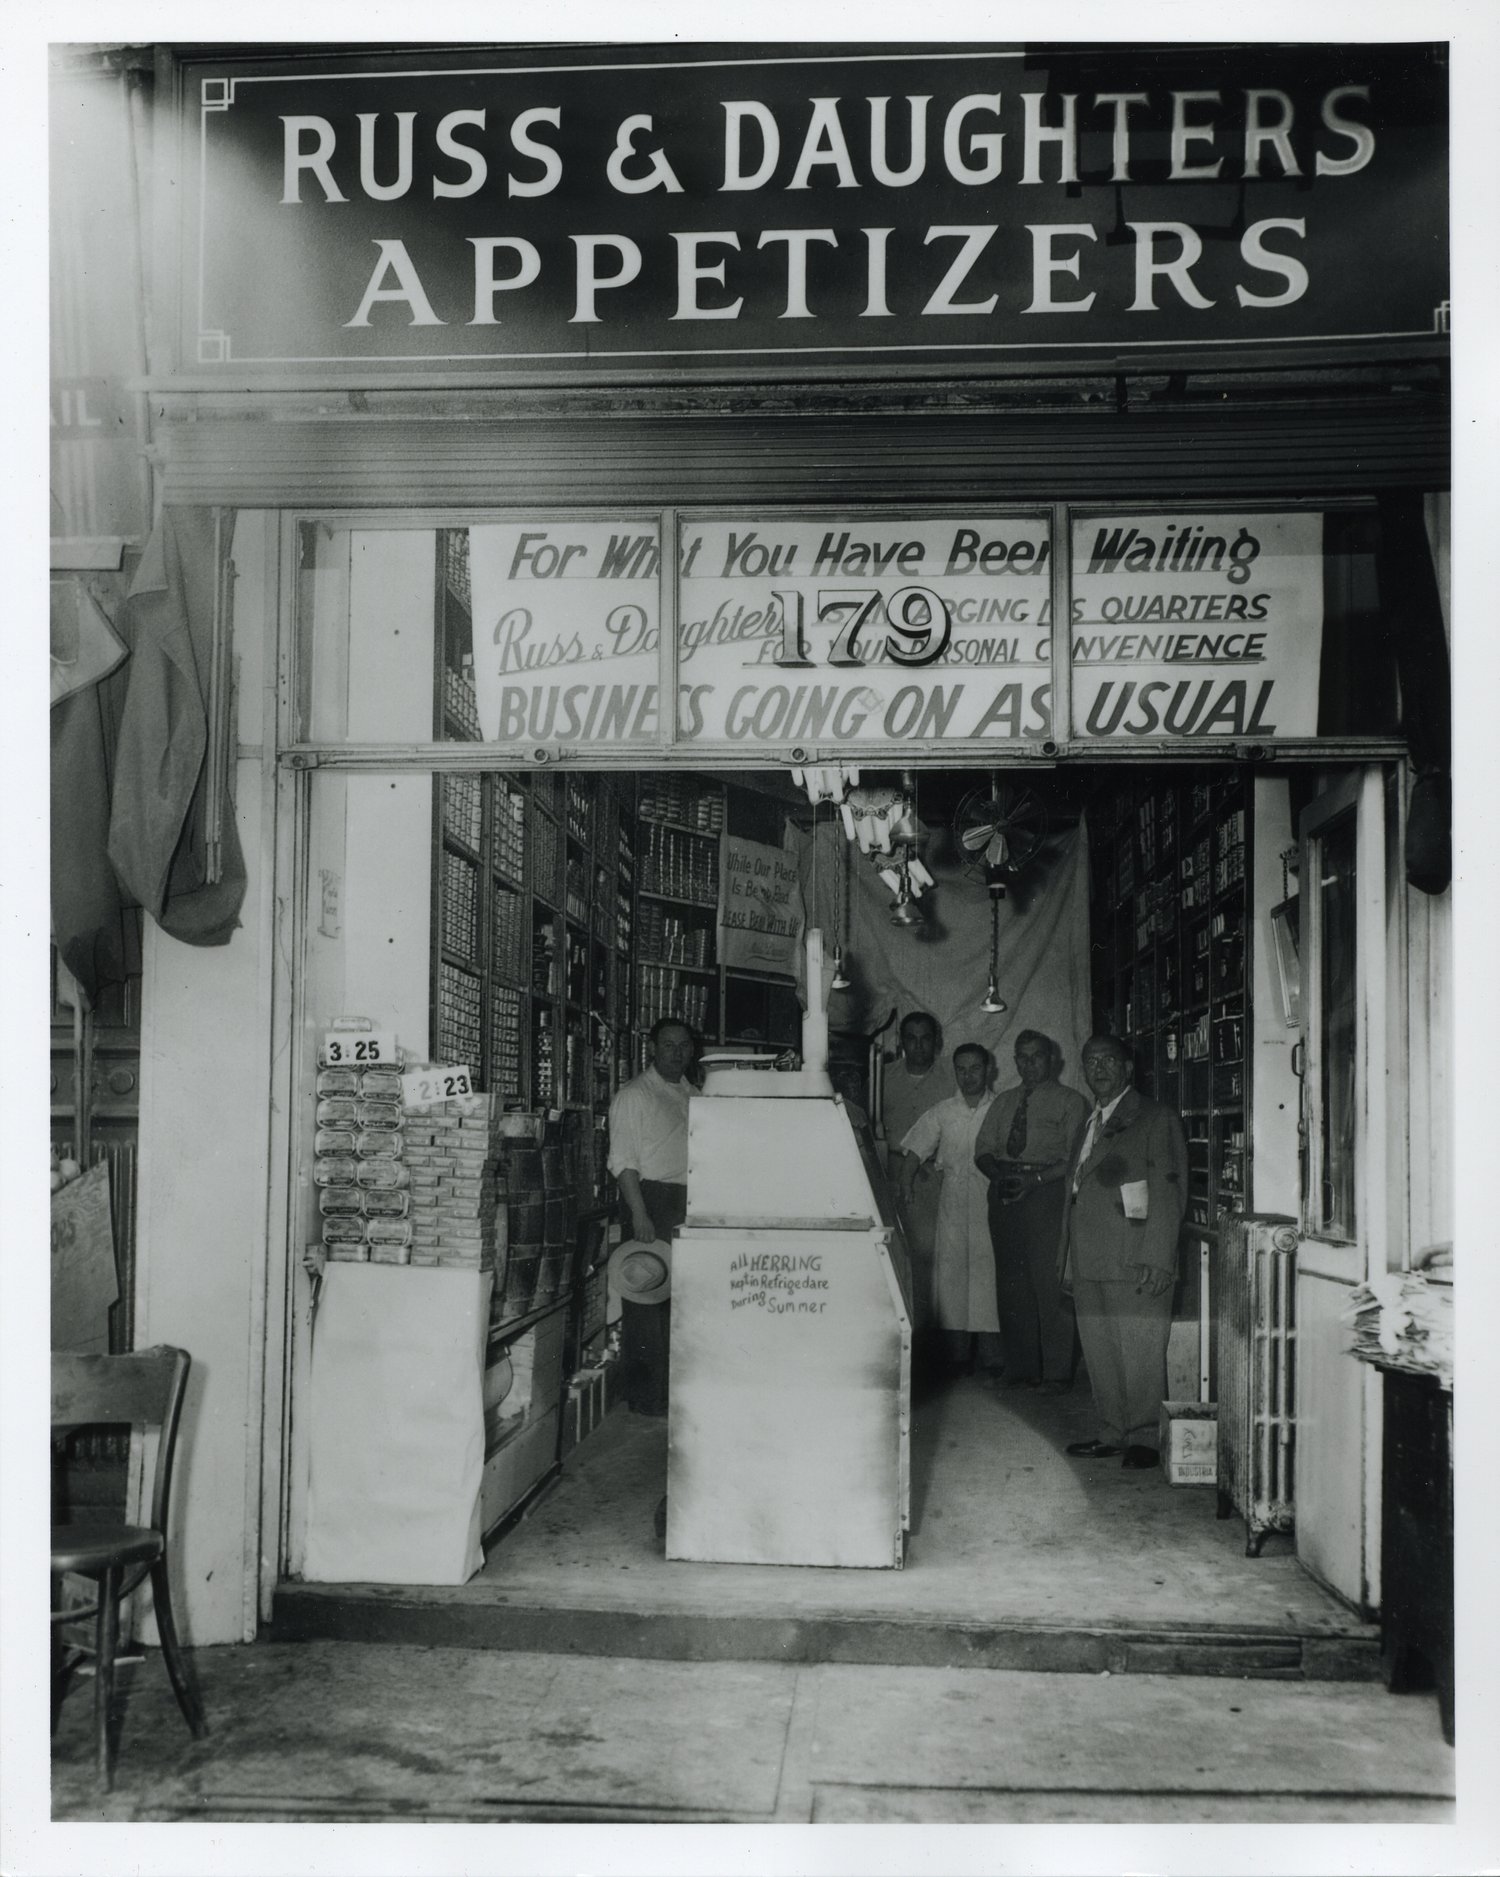 RUSS & DAUGHTERS
APPETIZERS
IL
For What You Have Been Waiting
Russ & Daughters IS ENLARGING ITS QUARTERS
FOR YOUR PERSONAL CONVENIENCE
179
BUSINESS GOING ON AS USUAL
While Our Place
Is Being
PLEASE BEAR WITH US
3 25
2 23
All HERRING
Kept in Refrigedare
During Summer
INDUSTRIA